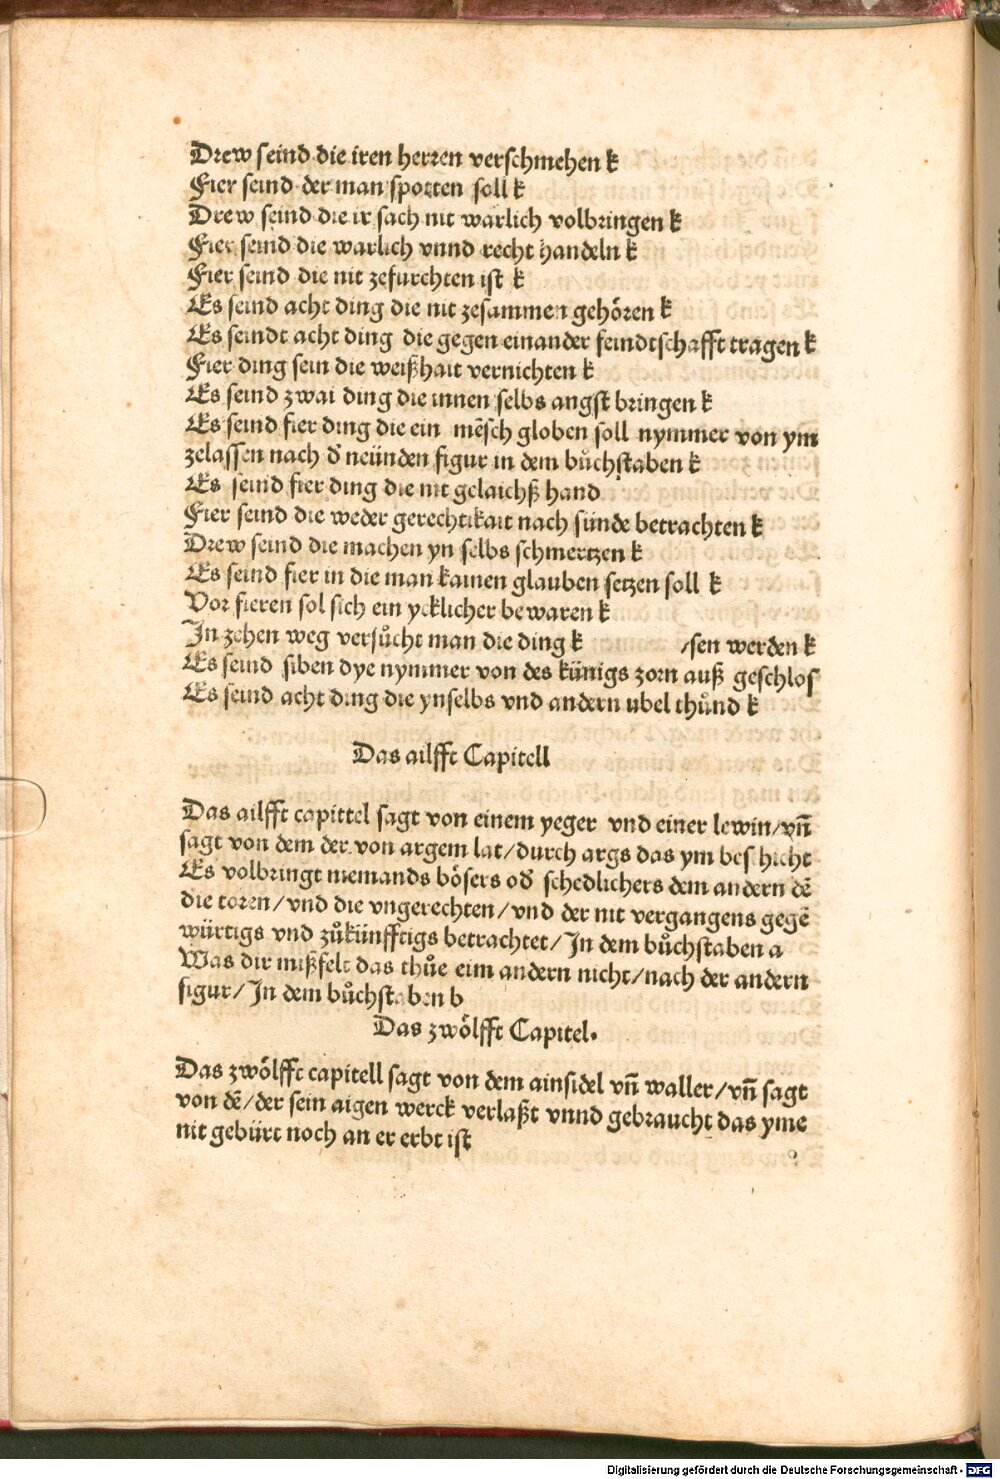 Drew seind die iren herren verschmehen k
Fier seind der man spotten soll k
Drew seind die ir sach nit warlich volbringen k
Fier seind die warlich vnnd recht handeln k
Fier seind die nit zefurchten ist k
Es seind acht ding die nit zesammen gehören k
Es seindt acht ding die gegen einander feindtschafft tragen k
Fier ding sein die weißhait vernichten k
Es seind zwai ding die innen selbs angst bringen k
Es seind fier ding die ein mēsch globen soll nymmer von ym
zelassen nach d̄ neünden figur in dem bůchstaben k
Es seind fier ding die nit gelaichß hand
Fier seind die weder gerechtikait nach sünde betrachten k
Drew seind die machen yn selbs schmertzen k
Es seind fier in die man kainen glauben setzen soll k
Vor fieren sol sich ein ycklicher bewaren k
In zehen weg versůcht man die ding k /sen werden k
Es seind siben dye nymmer von des künigs zorn auß geschlos
Es seind acht ding die ynselbs vnd andern ubel thůnd k
Das ailfft Capitell
Das ailfft capittel sagt von einem yeger vnd einer lewin/vn̄
sagt von dem der von argem lat/durch args das ym beschicht
Es volbringt niemands bösers od̄ schedlichers dem andern dē
die toren/vnd die vngerechten/vnd der nit vergangens gegē
würtigs vnd zůkünfftigs betrachtet/In dem bůchstaben a
Was dir mißfelt das thůe eim andern nicht/nach der andern
figur/In dem bůchstaben b
Das zwölfft Capitel.
Das zwölfft capitell sagt von dem ainsidel vn̄ waller/vn̄ sagt
von dē/der sein aigen werck verlaßt vnnd gebraucht das yme
nit gebürt noch an er erbt ist
Digitalisierung gefördert durch die Deutsche Forschungsgemeinschaft - DFG